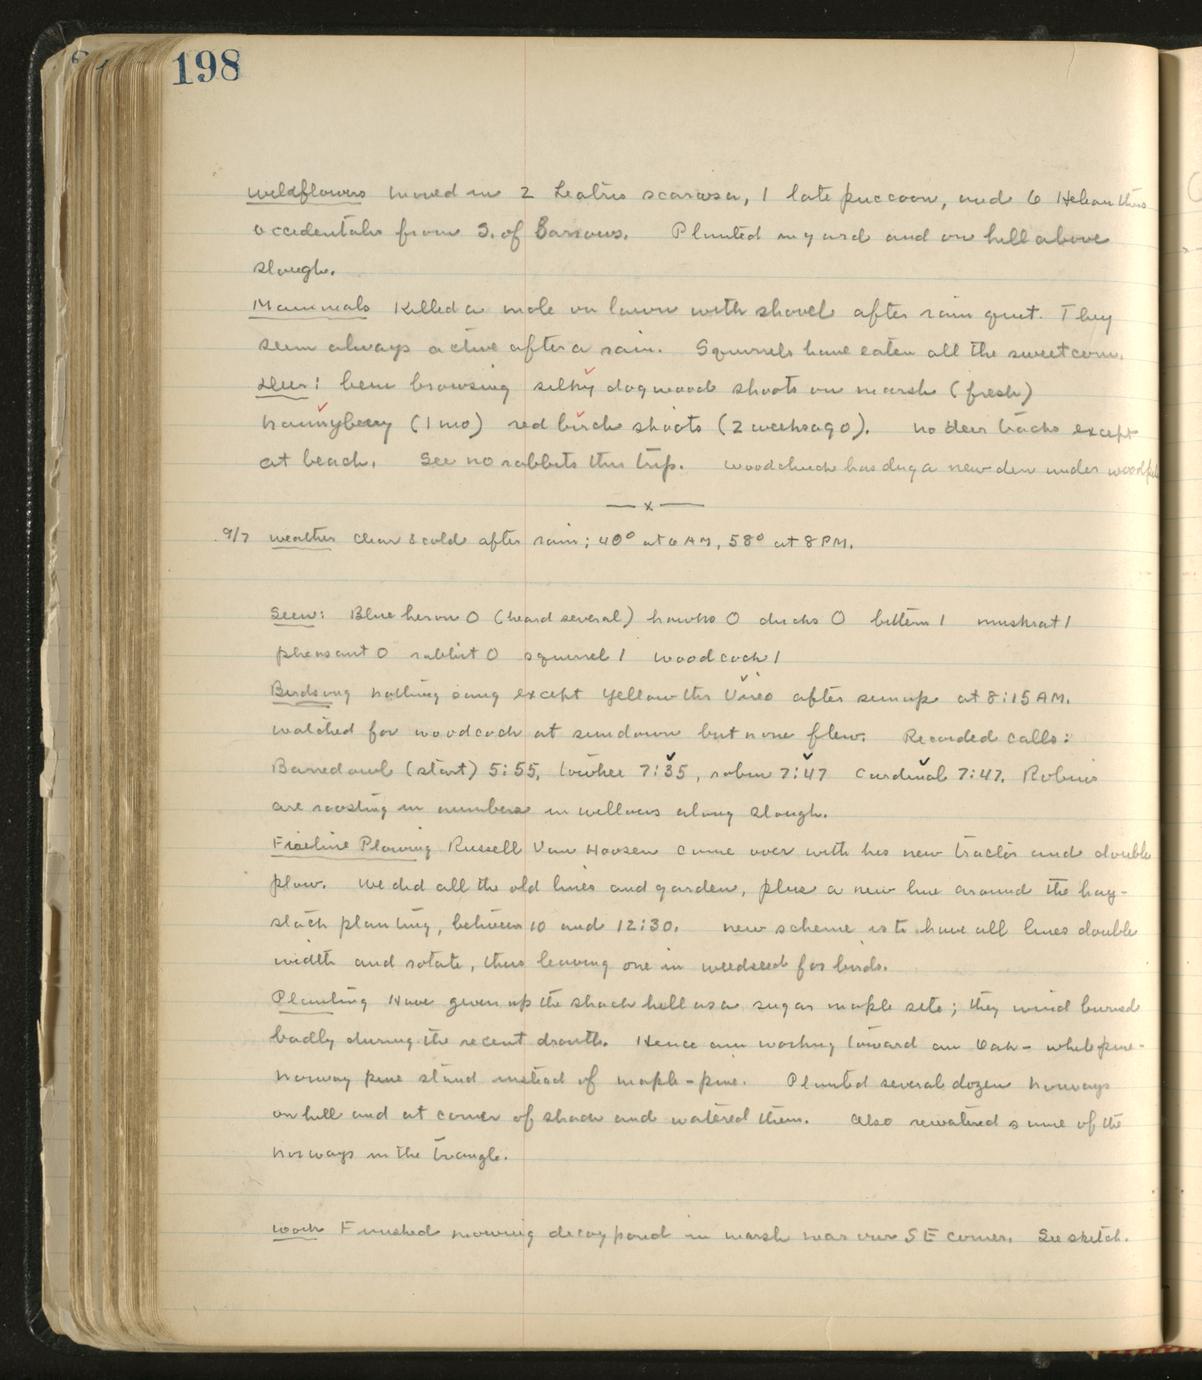 198
Wildflowers Moved in 2 Liatris scariosa, 1 late puccoon, and 6 Helianthus
occidentalis from S. of Barrows. Planted in yard and on hill above
slough.
Mammals Killed a mole on lawn with shovel after rain quit. They
seem always active after a rain. Squirrels have eaten all the sweetcorn.
Deer: been browsing silky dogwood shoots on marsh (fresh)
nannyberry (1 mo) red birch shoots (2 weeks ago). No deer tracks except
at beach. See no rabbits this trip. Woodchuck has dug a new den under woodpile
—x—
9/7 Weather Clear & cold after rain; 40° at 6 AM, 58° at 8 PM.
Seen: Blue heron 0 (heard several) hawks 0 ducks 0 bittern 1 muskrat 1
pheasant 0 rabbit 0 squirrel 1 woodcock 1
Birdsong Nothing sang except Yellow thr Vireo after sunup at 8:15 AM.
Watched for woodcock at sundown but none flew. Recorded calls:
Barred owl (start) 5:55, towhee 7:35, robin 7:47 Cardinal 7:47. Robins
are roosting in numbers in willows along slough.
Fireline Plowing Russell Van Hoosen came over with his new tractor and double
plow. We did all the old lines and garden, plus a new line around the hay-
stack planting, between 10 and 12:30. New scheme is to have all lines double
width and rotate, thus leaving one in weedseed for birds.
Planting Have given up the shack hill as a sugar maple site; they wind burned
badly during the recent drouth. Hence am working toward an Oak - white pine -
Norway pine stand instead of maple-pine. Planted several dozen Norways
on hill and at corner of shack and watered them. Also rewatered some of the
Norways in the triangle.
Work Finished mowing decoy pond in marsh near our SE corner. See sketch.